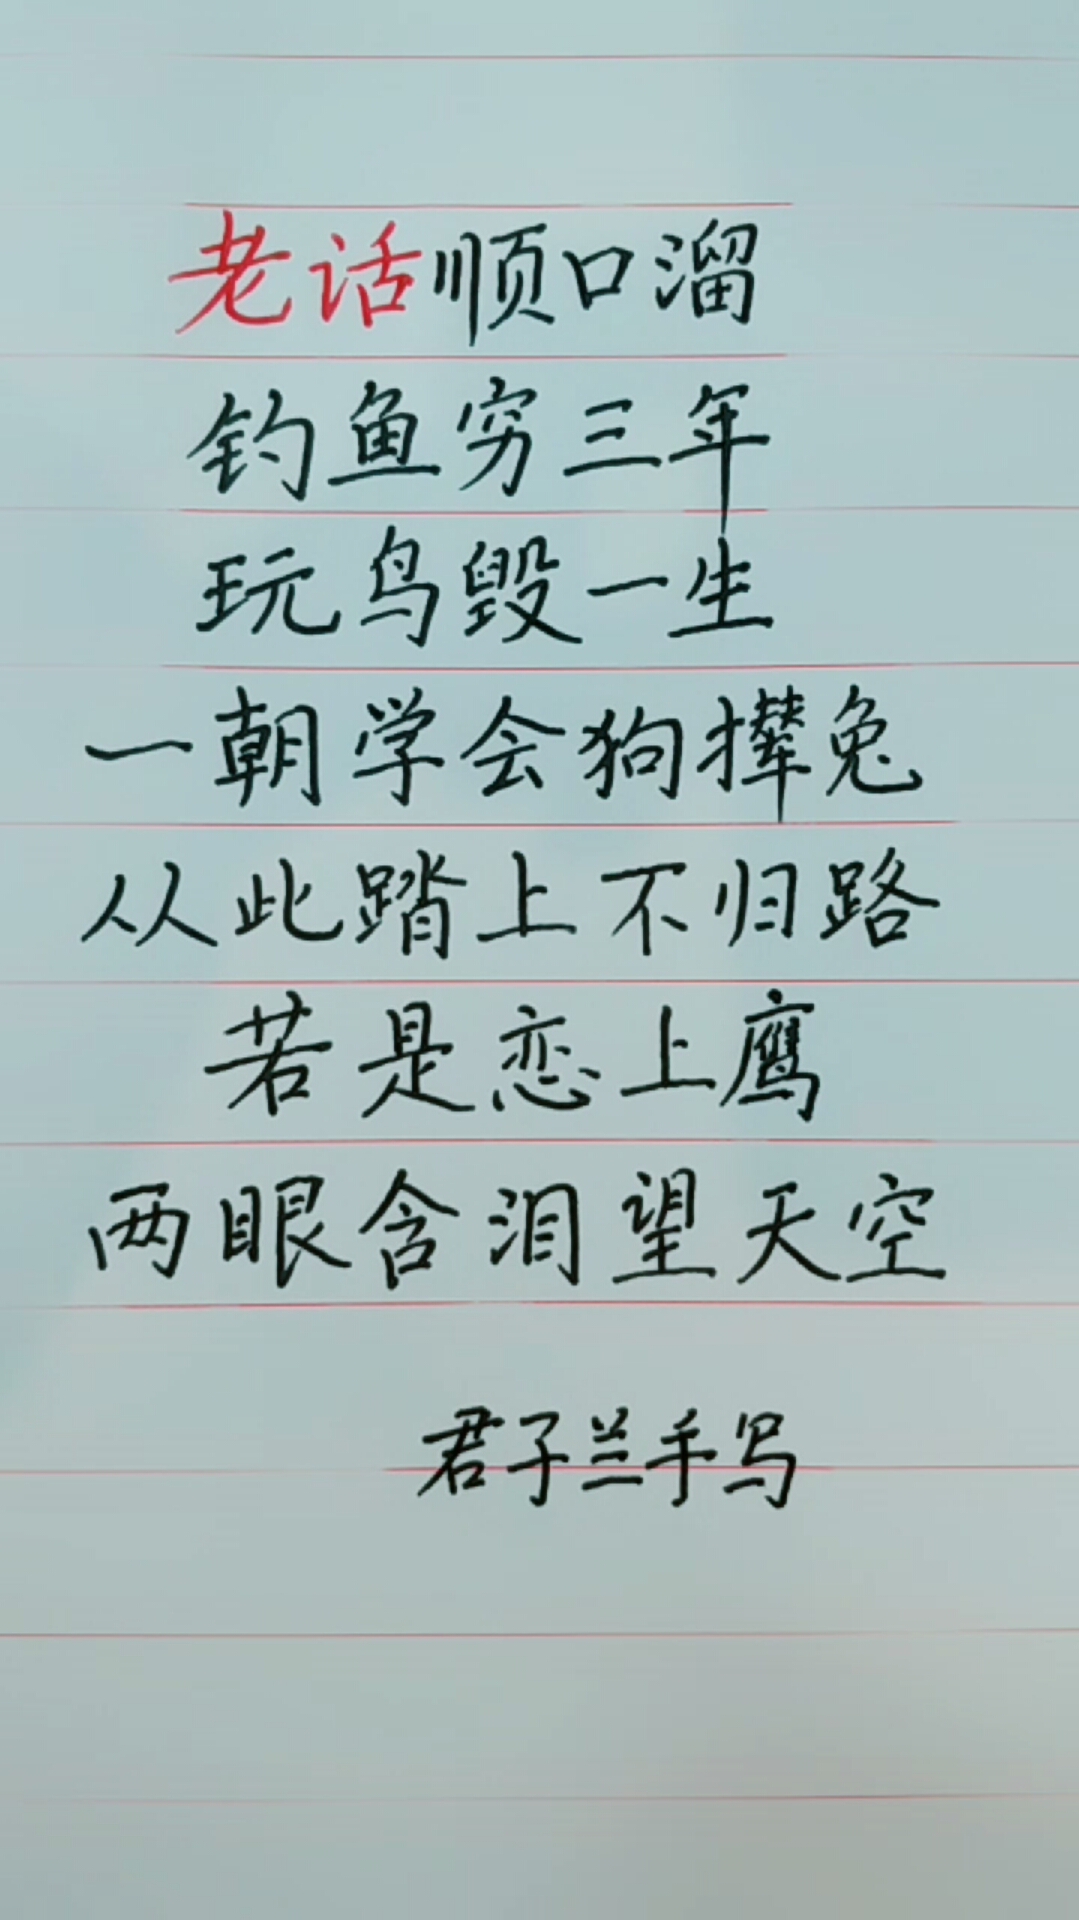 老话顺口溜
钓鱼穷三年
玩鸟毁一生
一朝学会狗撵兔
从此踏上不归路
若是恋上鹰
两眼含泪望天空
君子兰手写